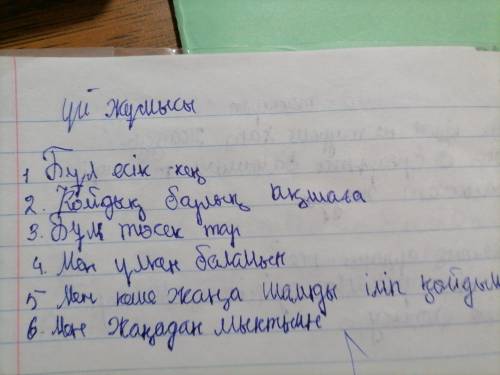 үй жұмысы
1 Бұл есік кең
2. Қойдық барлық ақшаға
3. Бұл төсек тар
4. Мен үлкен баламын
5 Мен кеше жаңа шамды іліп қойдым
6. Мен жаңадан мықтымн